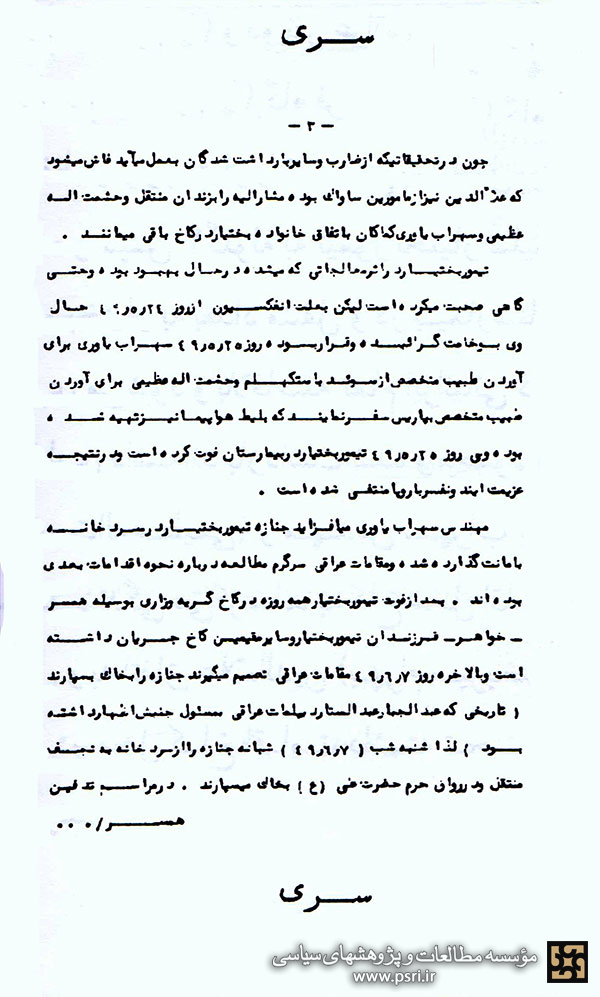 سری
- ۳ -
چون در تحقیقاتیکه از ضارب و سایر بازداشت شدگان بعمل میآید فاش میشود
که علاءالدین نیز از مامورین ساواک بوده مشارالیه را بزندان منتقل و حشمت اله
عظیمی و سهراب یاوری کماکان باتفاق خانواده بختیار در کاخ باقی میمانند .
تیمور بختیار در اثر معالجاتی که میشده در حال بهبود بوده و حتی
گاهی صحبت میکرده است لیکن بعلت انفکسیون از روز ۴۹/۵/۲۴ حال
وی بوخامت گرائیده و قرار بوده روز ۴۹/۵/۲۵ سهراب یاوری برای
آوردن طبیب متخصص از سوئد باستکهلم و حشمت اله عظیمی برای آوردن
طبیب متخصص بپاریس سفر نمایند که بلیط هواپیما نیز تهیه شده
بوده ولی روز ۴۹/۵/۲۵ تیمور بختیار در بیمارستان فوت کرده است و در نتیجه
عزیمت ایندو نفر باروپا منتفی شده است .
مهندس سهراب یاوری میافزاید جنازه تیمور بختیار در سردخانه
بامانت گذارده شده و مقامات عراقی سرگرم مطالعه درباره نحوه اقدامات بعدی
بوده اند . بعد از فوت تیمور بختیار همه روزه در کاخ گریه وزاری بوسیله همسر
- خواهر - فرزندان تیمور بختیار و سایر مقیمین کاخ جریان داشته
است و بالاخره روز ۴۹/۶/۷ مقامات عراقی تصمیم میگیرند جنازه را بخاک بسپارند
( تاریخی که عبدالجبار عبدالستار دیپلمات عراقی مسئول جنبش اظهار داشته
بود ) لذا شنبه شب ( ۴۹/۶/۷ ) شبانه جنازه را از سردخانه به نجف
منتقل و در رواق حرم حضرت علی (ع) بخاک میسپارند . در مراسم تدفین
همسر/ . . .
سری
مؤسسه مطالعات و پژوهشهای سیاسی
www.psri.ir